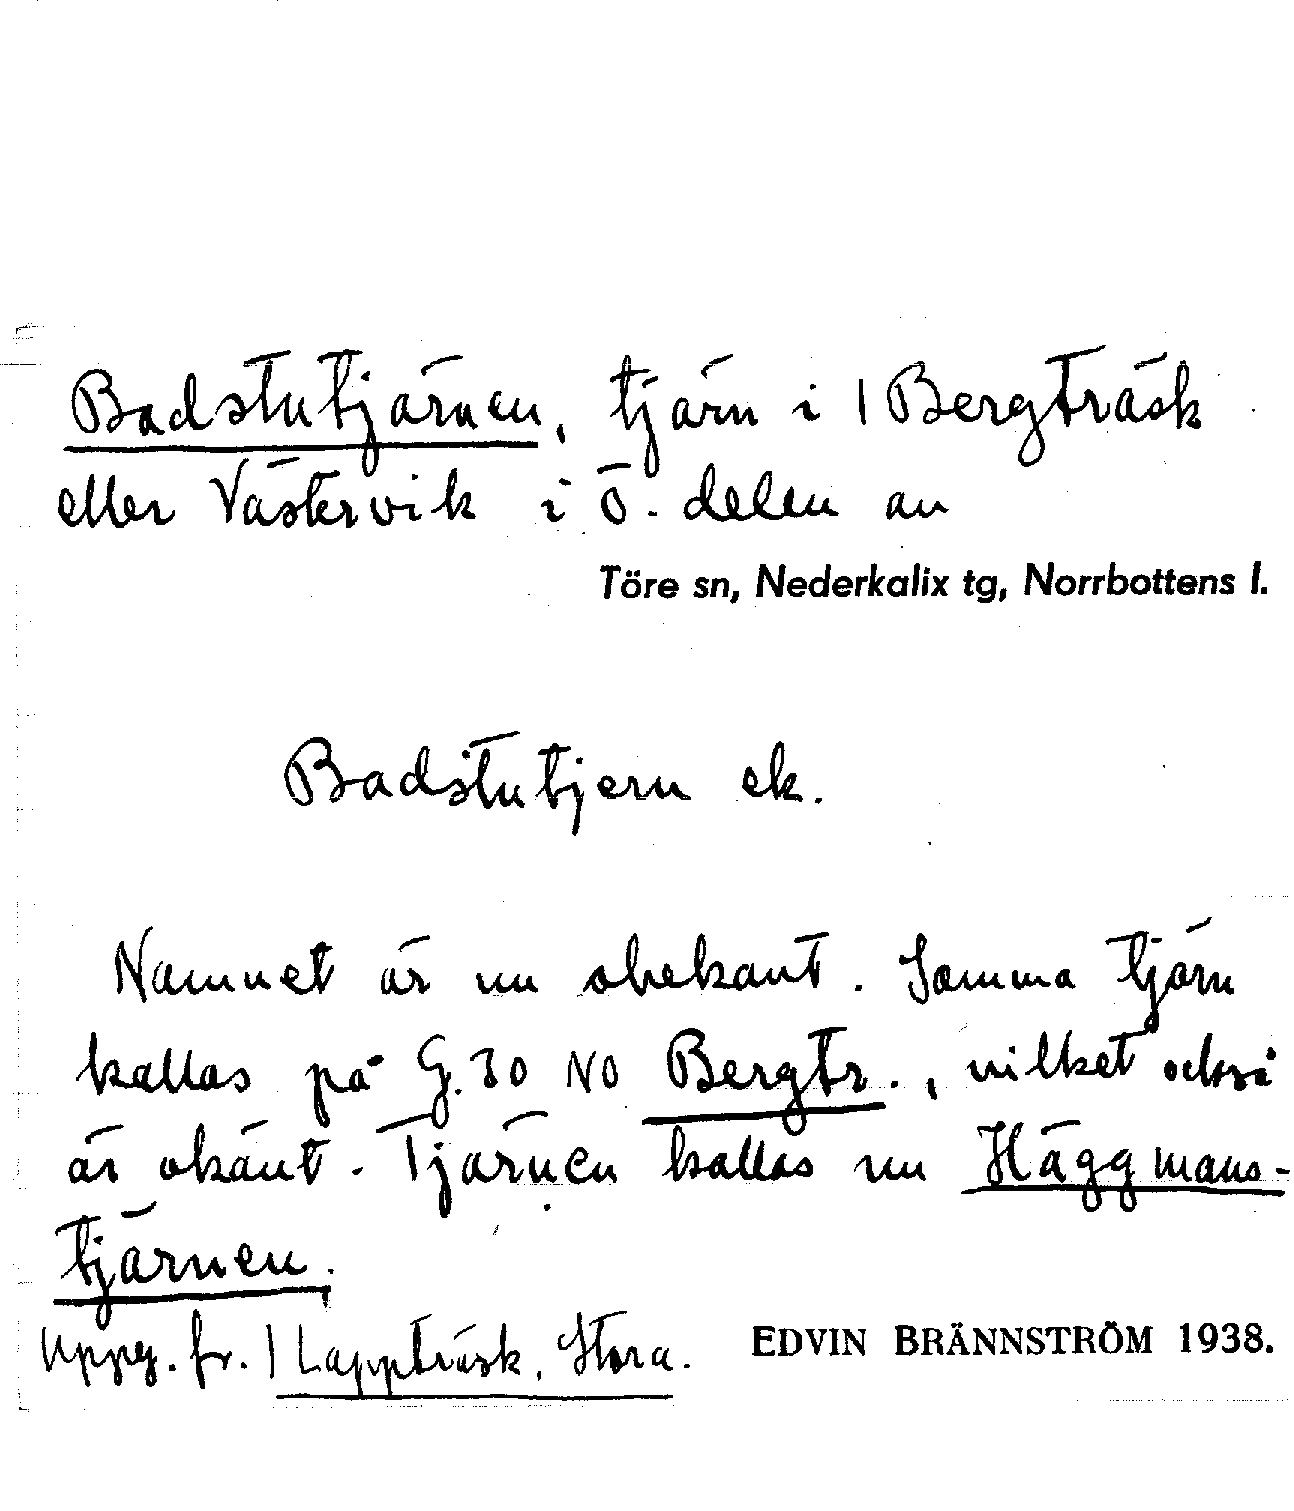 Badstutjärnen, tjärn i | Bergträsk
eller Västervik i Ö. delen av
Töre sn, Nederkalix tg, Norrbottens l.
Badstutjern ek.
Namnet är nu obekant. Samma tjärn
kallas på G. 30 NO Bergtr., vilket också
är okänt. Tjärnen kallas nu Häggmans-
tjärnen.
Uppg. fr. | Lappträsk, Stora.
EDVIN BRÄNNSTRÖM 1938.